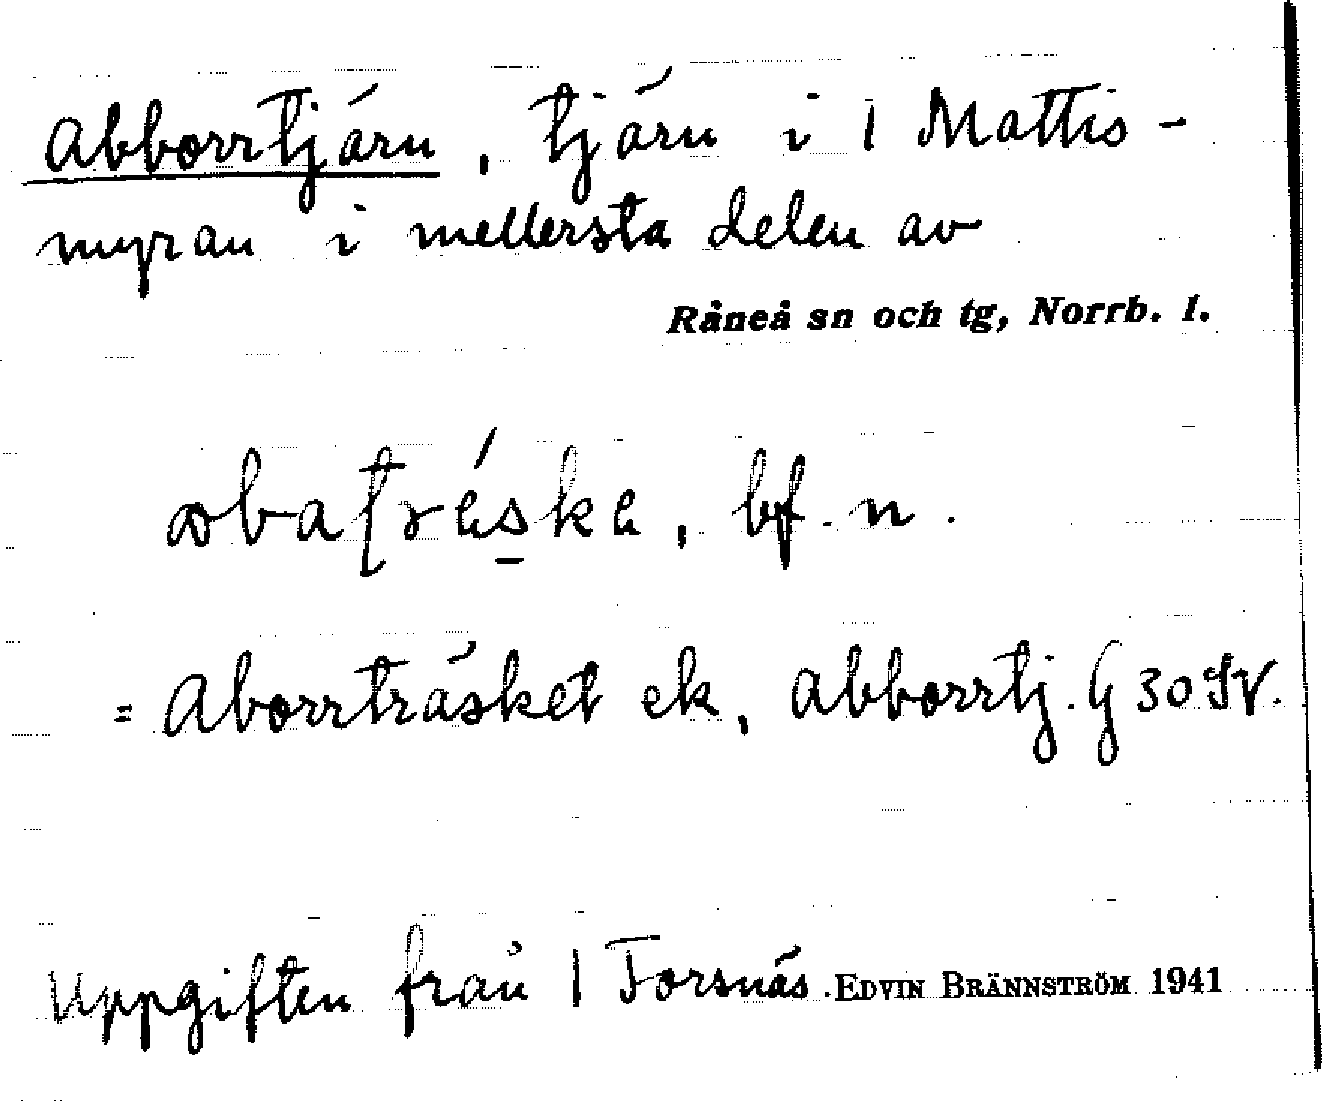 Abborrtjärn, tjärn i | Mattis-
myran i mellersta delen av
Råneå sn och tg, Norrb. l.
bf. n.
= Aborrträsket ek, Abborrtj. G 30 SV.
Uppgiften från | Forsnäs. EDVIN BRÄNNSTRÖM 1941